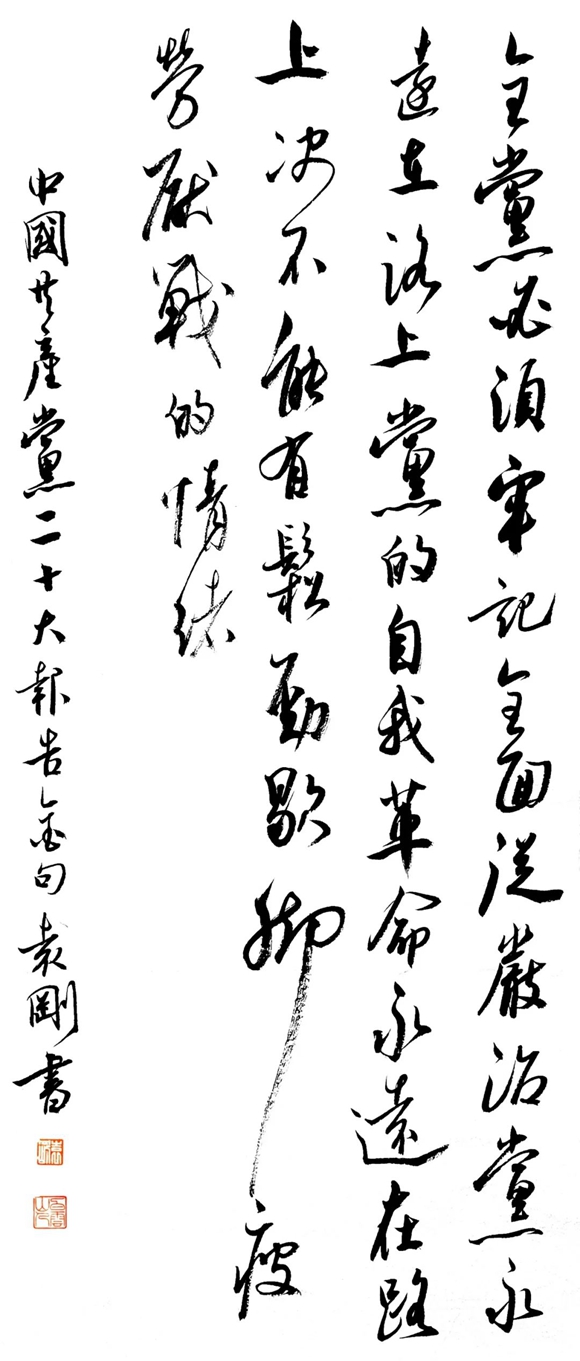 全黨必須牢記全面從嚴治黨永
遠在路上黨的自我革命永遠在路
上决不能有鬆勁歇脚疲
勞厭戰的情緒
中國共產黨二十大報告金句 袁剛書